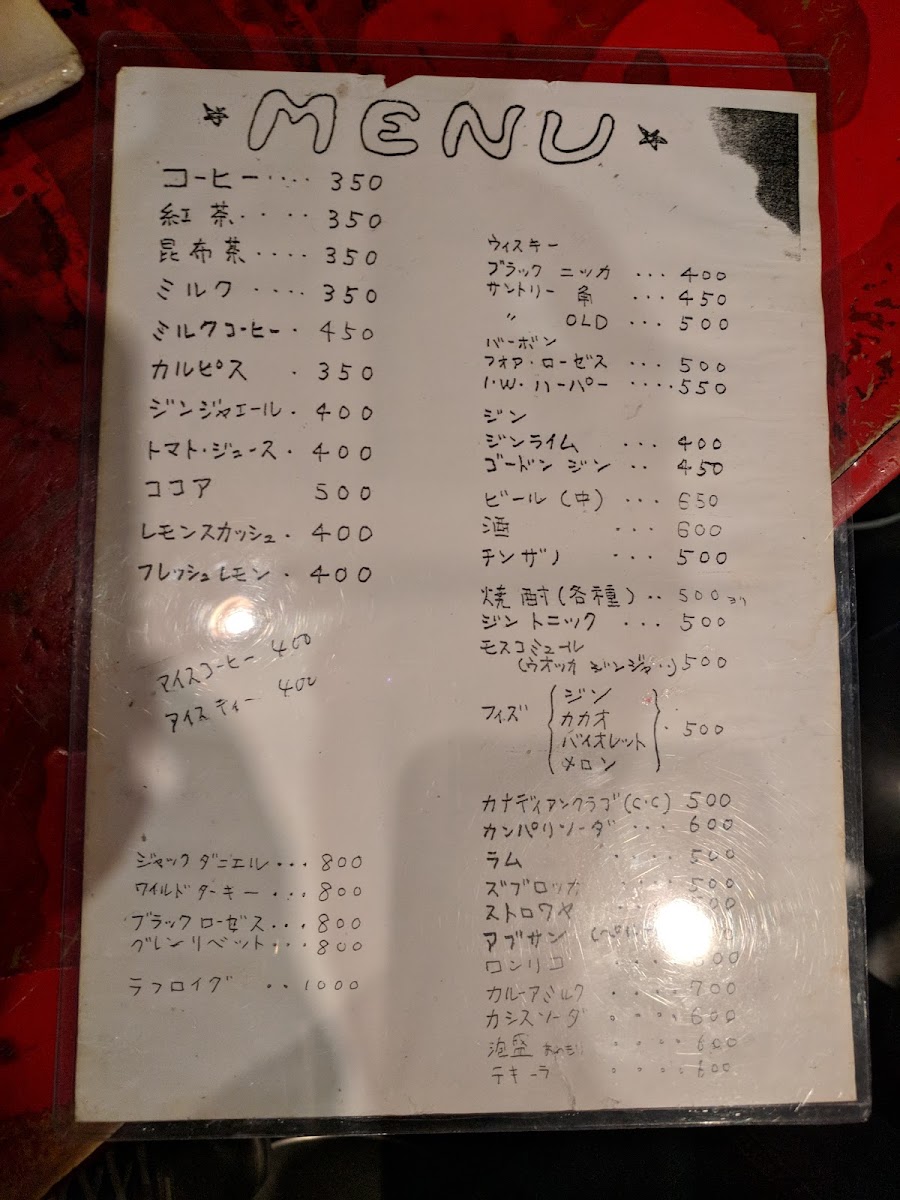 MENU
コーヒー・・・・350
紅茶・・・・350
昆布茶・・・・350
ミルク・・・・350
ミルクコーヒー・450
カルピス・350
ジンジャエール・400
トマト・ジュース・400
ココア 500
レモンスカッシュ・400
フレッシュレモン・400
アイスコーヒー 400
アイスティー 400
ジャックダニエル・・・800
ワイルドターキー・・・800
ブラックローゼス・・・800
グレンリベット・・・800
ラフロイグ・・1000
ウィスキー
ブラックニッカ・・・400
サントリー 角・・・450
〃 OLD・・・500
バーボン
フォア・ローゼス・・・500
I・W・ハーパー・・・・550
ジン
ジンライム・・・400
ゴードン ジン・・450
ビール(中)・・・650
酒・・・600
チンザノ・・・500
焼酎(各種)・・500ヨリ
ジントニック・・・500
モスコミュール
(ウオッカ ジンジャ・・)500
フィズ
ジン
カカオ
バイオレット
メロン
・500
カナディアンクラブ(C・C) 500
カンパリソーダ・・・600
ラム・・・・500
ズブロッカ・・・・500
ストロワヤ・・
アブサン
ロンリコ・・・・
カルーアミルク・・・・700
カシスソーダ・・・・600
泡盛・・・・600
テキーラ・・・・600